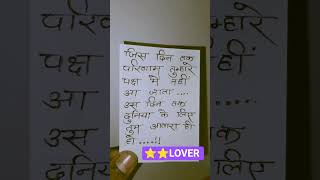 जिस दिन तक
परिणाम तुम्हारे
पक्ष में नहीं
आ जाता ....
उस दिन तक
दुनिया के लिए
तुम आवारा ही
हो ....!!
⭐⭐LOVER